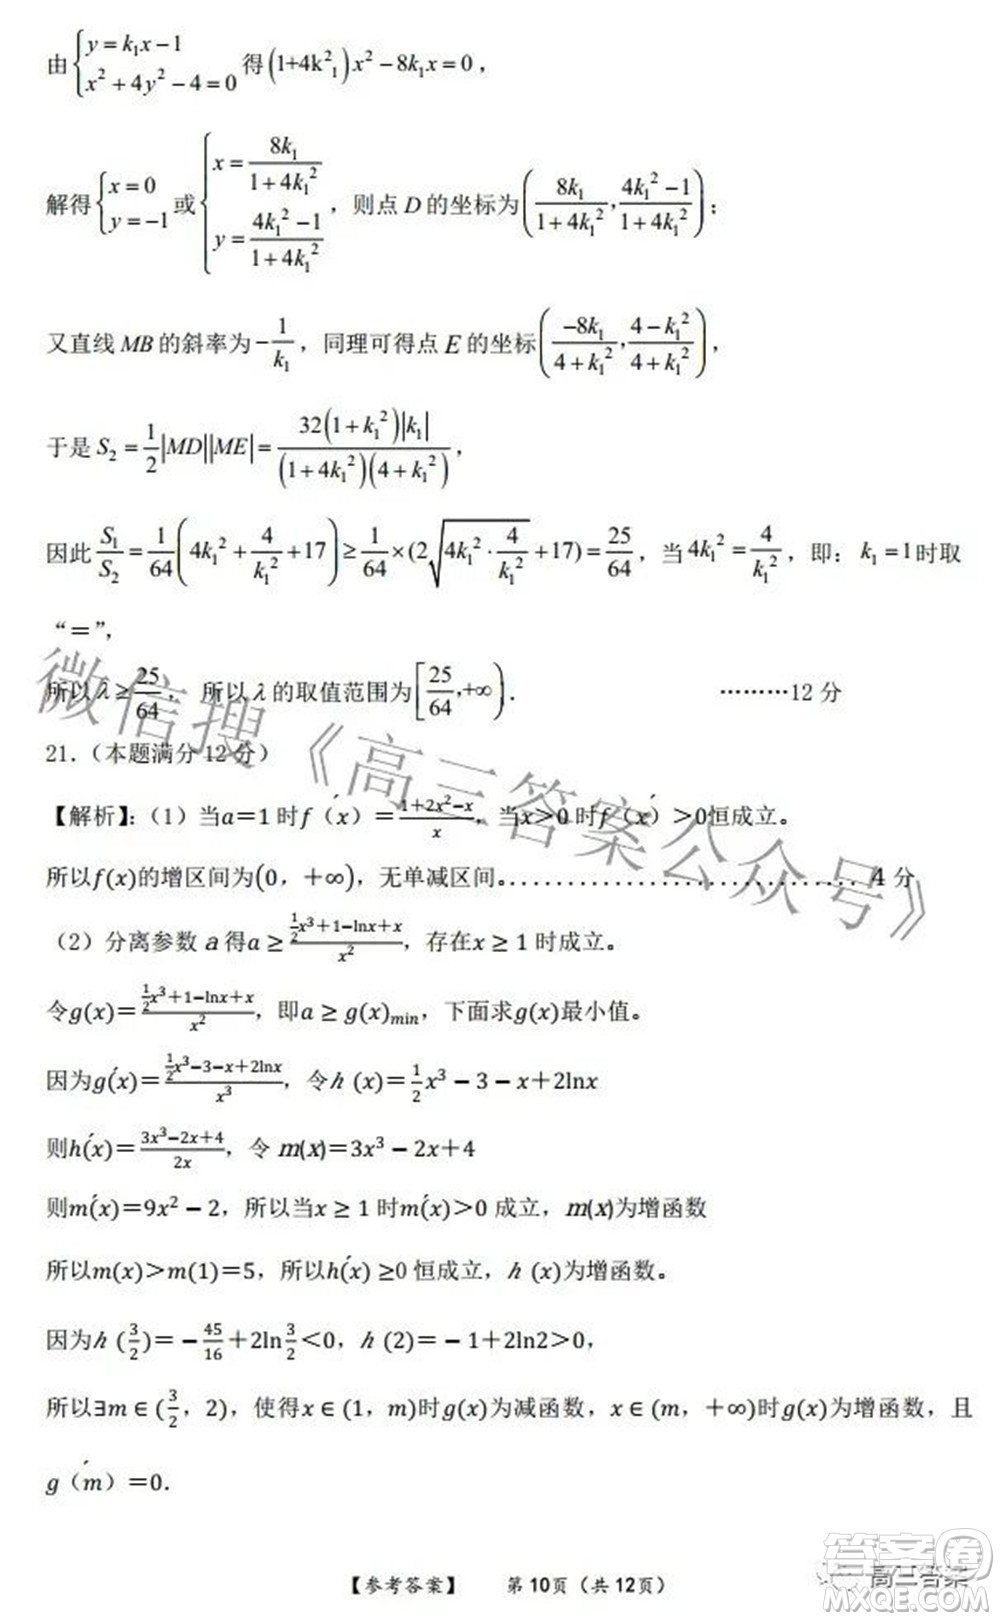 由{y=k₁x-1
x²+4y²-4=0 得(1+4k²₁)x²-8k₁x=0，
解得{x=0
y=-1 或{x=8k₁/(1+4k₁²)
y=(4k₁²-1)/(1+4k₁²)，则点D的坐标为(8k₁/(1+4k₁²),(4k₁²-1)/(1+4k₁²))；
又直线MB的斜率为-1/k₁，同理可得点E的坐标(-8k₁/(4+k₁²),(4-k₁²)/(4+k₁²))，
于是S₂=1/2|MD||ME|=32(1+k₁²)|k₁|/((1+4k₁²)(4+k₁²))，
因此S₁/S₂=1/64(4k₁²+4/k₁²+17)≥1/64×(2√(4k₁²·4/k₁²)+17)=25/64，当4k₁²=4/k₁²，即：k₁=1时取
“=”，
所以λ≥25/64，所以λ的取值范围为[25/64,+∞)． ………12分
21．（本题满分12分）
【解析】：（1）当a=1时f′(x)=(1+2x²-x)/x，当x>0时f′(x)>0恒成立。
所以f(x)的增区间为(0，+∞)，无单减区间。................................ 4分
（2）分离参数a得a≥(½x³+1-lnx+x)/x²，存在x≥1时成立。
令g(x)=(½x³+1-lnx+x)/x²，即a≥g(x)min，下面求g(x)最小值。
因为g′(x)=(½x³-3-x+2lnx)/x³，令h(x)=½x³-3-x+2lnx
则h′(x)=(3x³-2x+4)/2x，令m(x)=3x³-2x+4
则m′(x)=9x²-2，所以当x≥1时m′(x)>0成立，m(x)为增函数
所以m(x)>m(1)=5，所以h′(x)≥0恒成立，h(x)为增函数。
因为h(3/2)=-45/16+2ln3/2<0，h(2)=-1+2ln2>0，
所以∃m∈(3/2，2)，使得x∈(1，m)时g(x)为减函数，x∈(m，+∞)时g(x)为增函数，且
g′(m)=0．
【参考答案】 第10页（共12页）
微信搜《高三答案公众号》
答案圈
高三答案
MXQE.COM